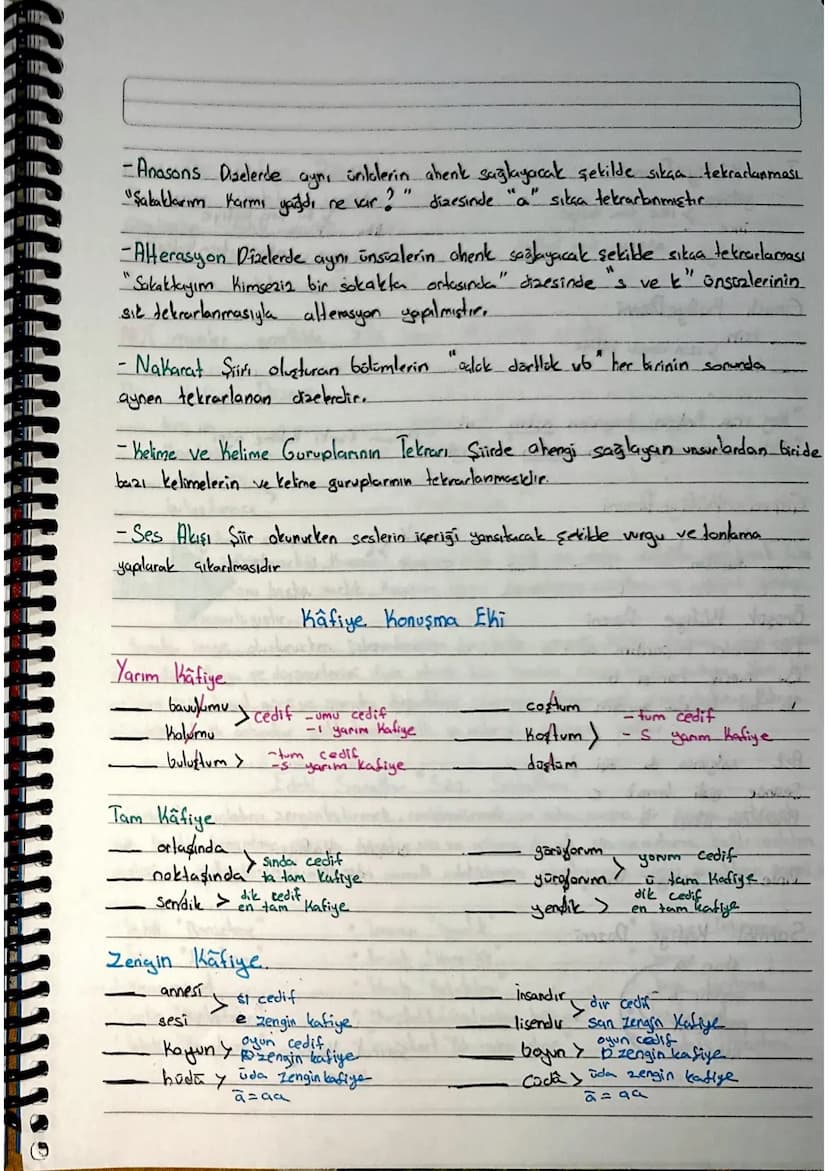 - Anasons Dizelerde aynı ünlülerin ahenk sağlayacak şekilde sıkça tekrarlanması
"Şakaklarım Karmı yağdı ne var?" dizesinde "a" sıkça tekrarlanmıştır
- Aliterasyon Dizelerde aynı ünsüzlerin ahenk sağlayacak şekilde sıkça tekrarlaması
"Sokaktayım Kimsesiz bir sokakta ortasında" dizesinde "s ve k" ünsüzlerinin
sık tekrarlanmasıyla aliterasyon yapılmıştır.
- Nakarat Şiiri oluşturan bölümlerin " dörtlük vb" her birinin sonunda
aynen tekrarlanan dizelerdir.
- Kelime ve Kelime Guruplarının Tekrarı Şiirde ahengi sağlayan unsurlardan biride
bazı kelimelerin ve kelime guruplarının tekrarlanmasıdır.
- Ses Akışı Şiir okunurken seslerin içeriği yansıtacak şekilde vurgu ve tonlama
yapılarak çıkarılmasıdır
Kâfiye Konuşma Eki
Yarım Kâfiye
bavulumu > cedif -umu cedif
-l yarım Kafiye
Kolumu
buluştum > -tum cedif
-s yarım kafiye
coştum
Koştum > -tum cedif
- S yarım Kafiye
düştüm
Tam Kâfiye
ortasında > sında cedif
noktasında ta tam Kafiye
sendik > dik cedif
en tam Kafiye
görüyorum > yorum cedif
yürüyorum ü tam Kafiye
yendik > dik cedif
en tam kafiye
Zengin Kâfiye.
annesi > si cedif
sesi e zengin kafiye
Koyun > oyun cedif
zengin kafiye
hüdâ > üda zengin kafiye
ā = aa
insandır > dır cedif
san zengin Kafiye
boyun > oyun cedif
zengin kafiye
cüdâ > üda zengin kafiye
ā = aa